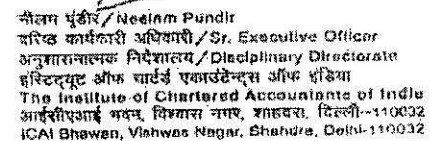 नीलम पुंडीर/Neelam Pundir
वरिष्ठ कार्यकारी अधिकारी/Sr. Executive Officer
अनुशासनात्मक निदेशालय/Disciplinary Directorate
इंस्टिट्यूट ऑफ चार्टर्ड एकाउंटेन्ट्स ऑफ इंडिया
The Institute of Chartered Accountants of India
आईसीएआई भवन, विश्वास नगर, शाहदरा, दिल्ली-110032
ICAI Bhawan, Vishwas Nagar, Shahdra, Delhi-110032